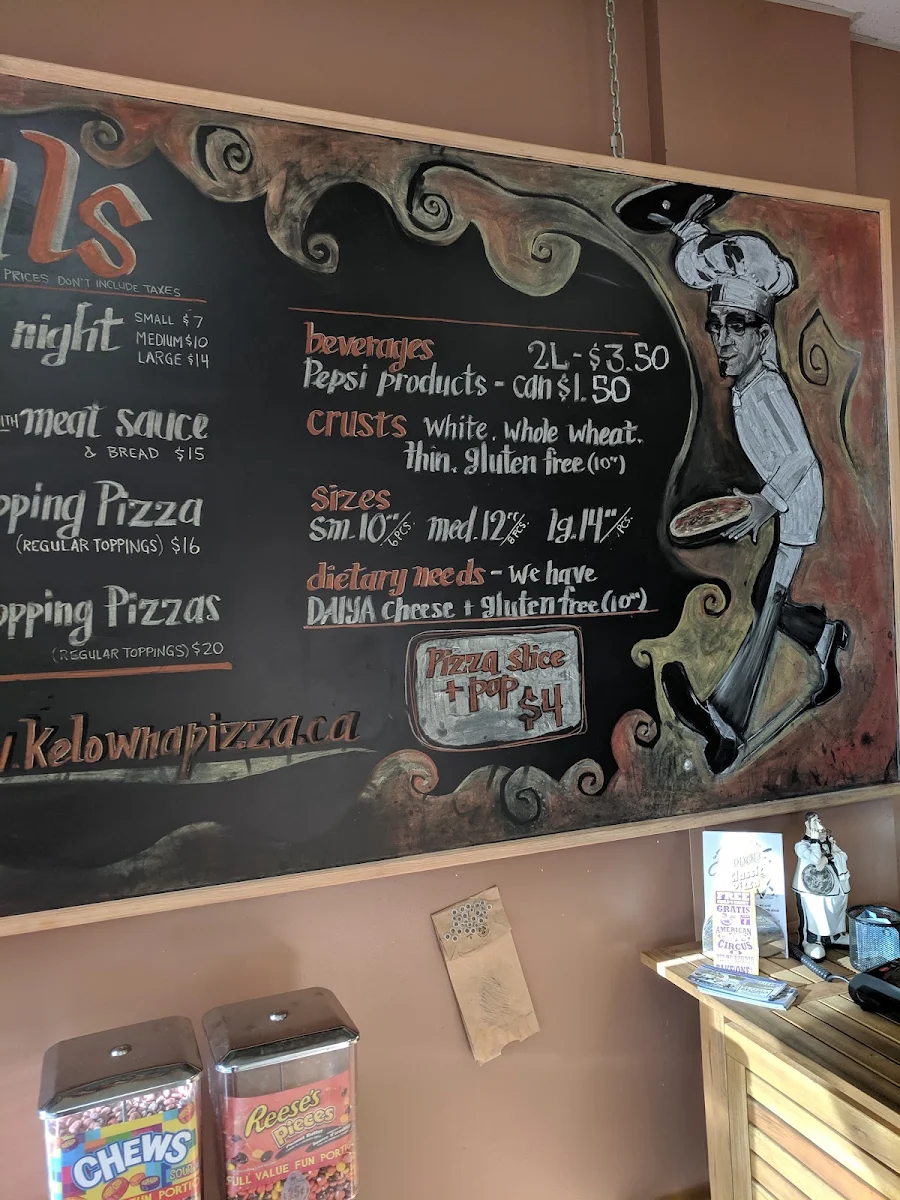 ls
PRICES DON'T INCLUDE TAXES
night
SMALL $7
MEDIUM $10
LARGE $14
meat sauce
& BREAD $15
pping Pizza
(REGULAR TOPPINGS) $16
opping Pizzas
(REGULAR TOPPINGS) $20
.kelownapizza.ca
beverages 2L - $3.50
Pepsi products - can $1.50
crusts white, whole wheat,
thin, gluten free (10")
sizes
sm. 10" 6 PCS. med. 12" 8 PCS. lg. 14" PCS.
dietary needs - we have
DAIYA cheese + gluten free (10")
Pizza slice
+ pop
$4
CHEWS
SOUR
FUN PORTIO
Reese's
Pieces
FULL VALUE FUN PORTI
25¢
classic
Pizza
FREE
GRATIS
AMERICAN
CIRCUS